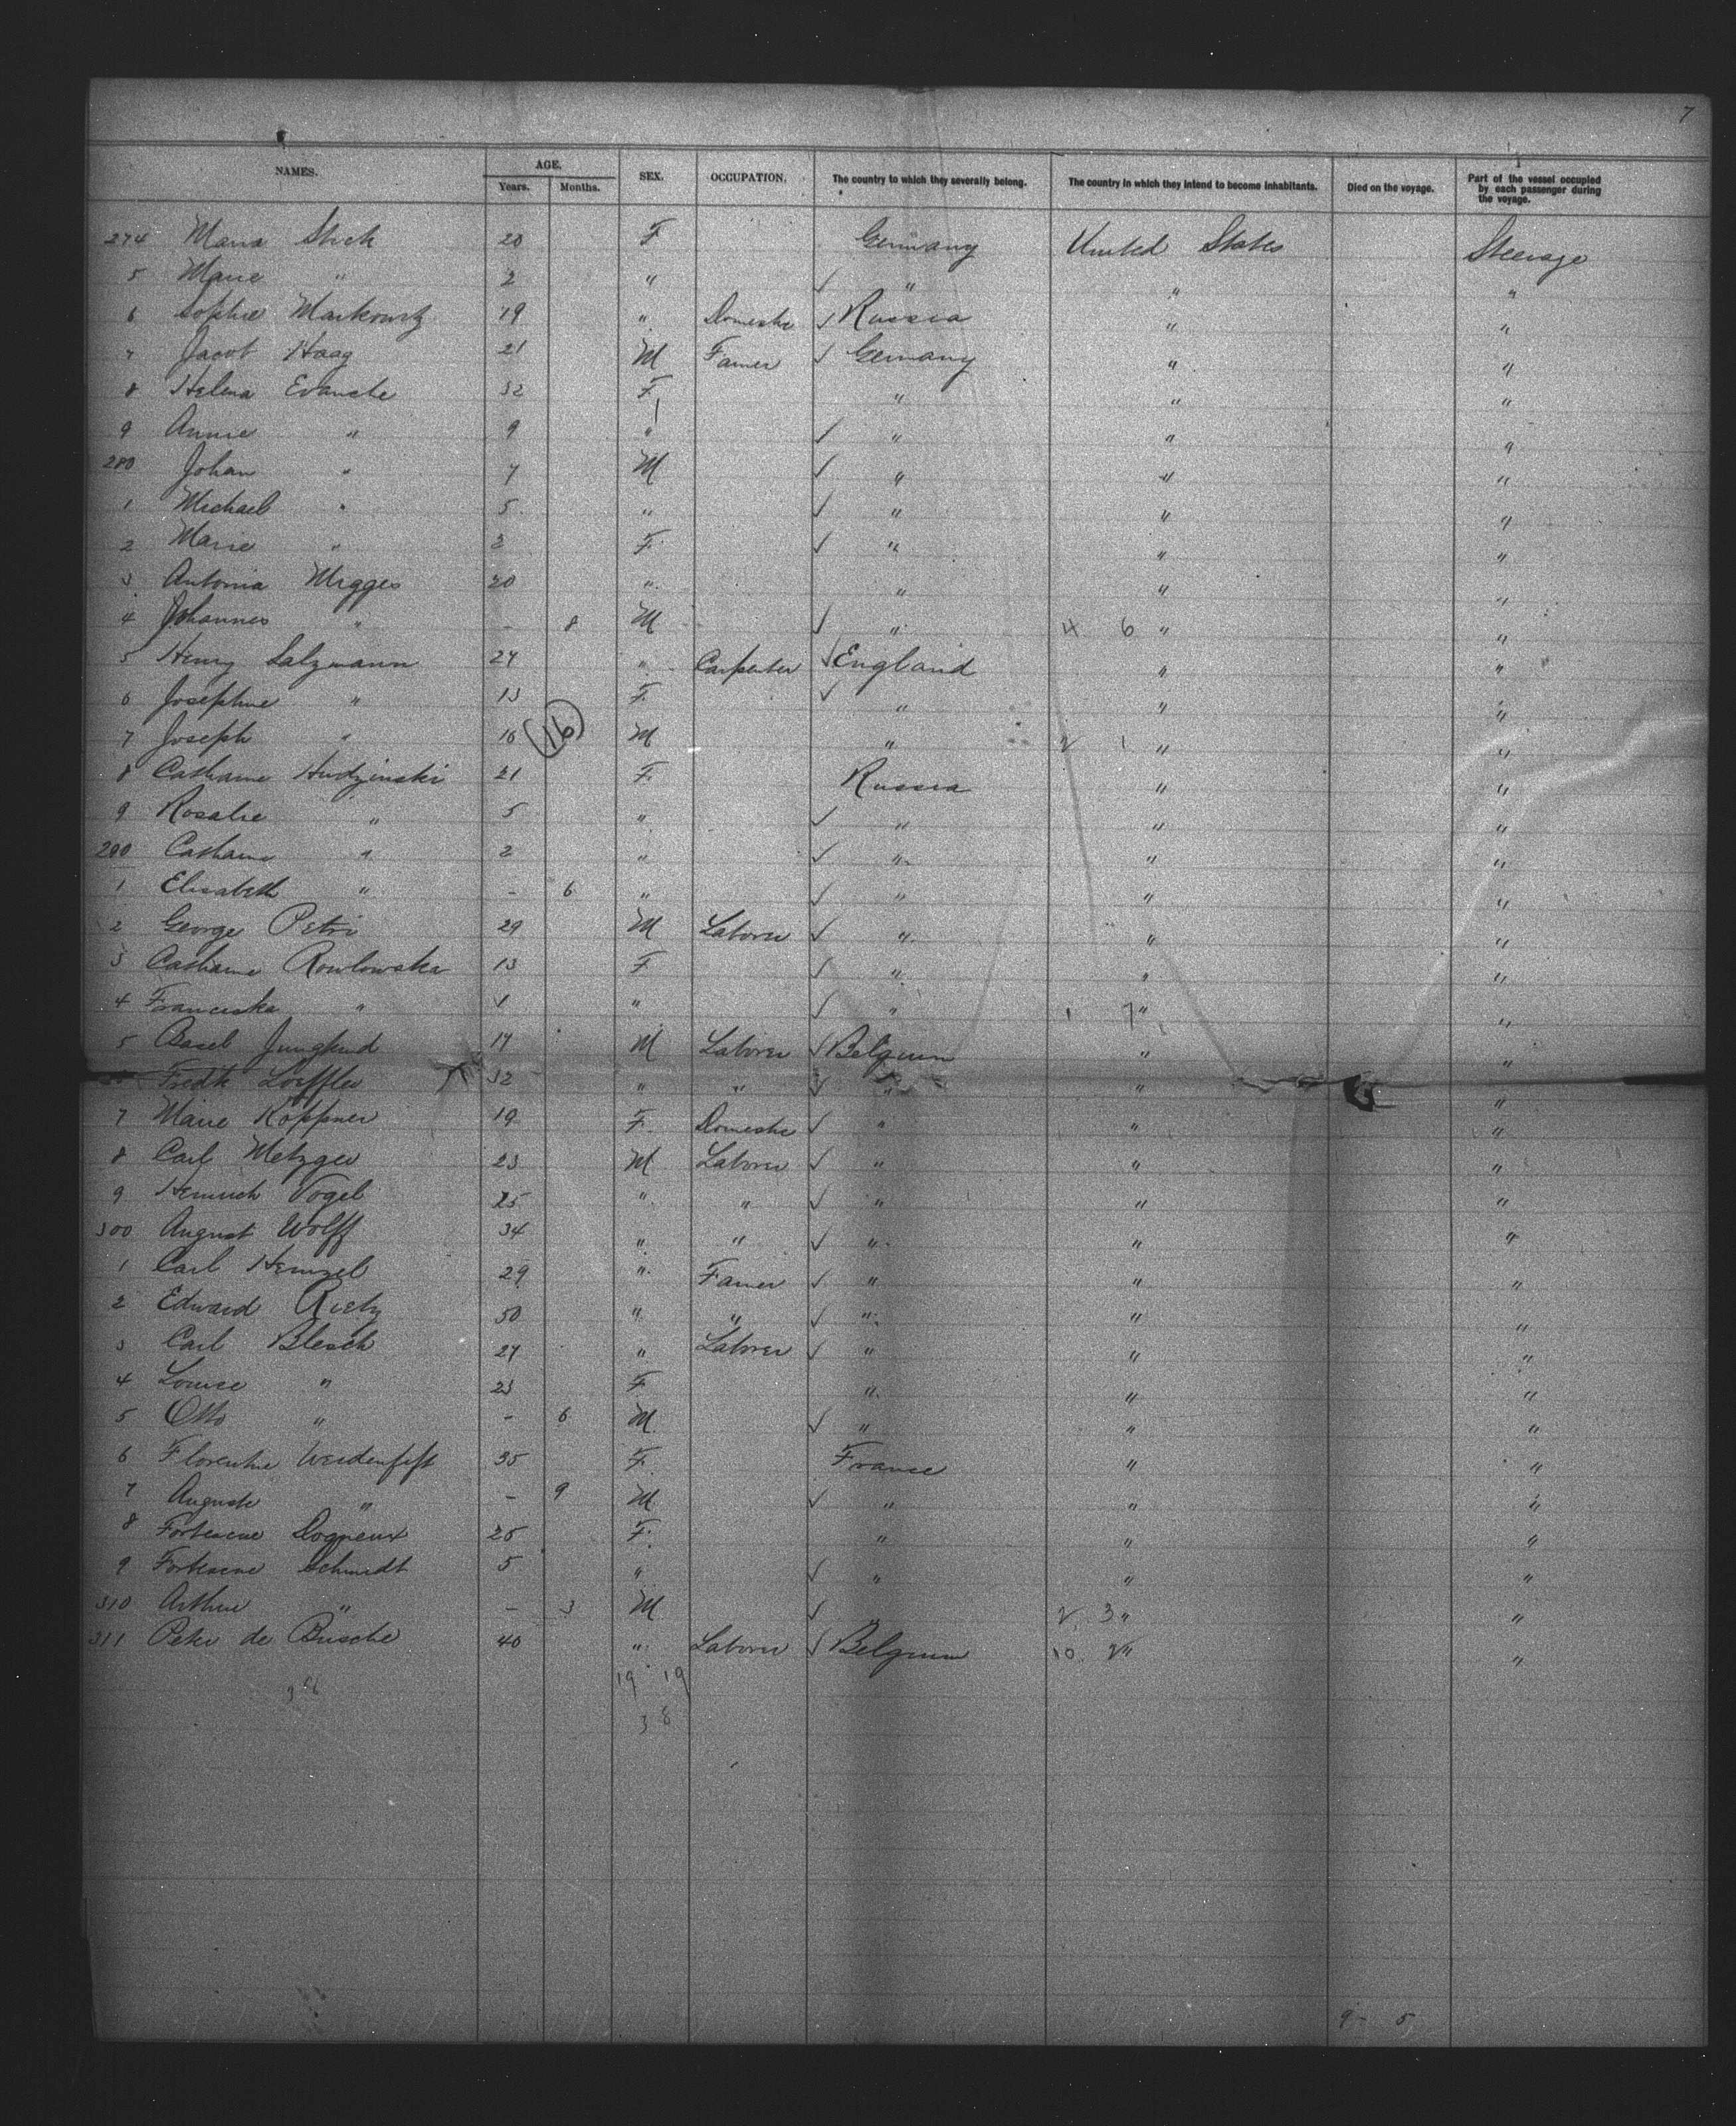 7
NAMES. AGE. SEX. OCCUPATION. The country to which they severally belong. The country in which they intend to become inhabitants. Died on the voyage. Part of the vessel occupied by each passenger during the voyage.
Years. Months.
274 Maria Stick 20 F Germany United States Steerage
5 Marie " 2 " ✓ " " "
6 Sophie Markowitz 19 " Domestic ✓ Russia " "
7 Jacob Haag 21 M Famer ✓ Germany " "
8 Helena Evanste 32 F " " "
9 Annie " 9 " ✓ " " "
280 Johan " 7 M ✓ " " "
1 Michael " 5 " ✓ " " "
2 Marie " 2 F ✓ " " "
3 Antonia Migges 20 " " " "
4 Johannes " - 8 M ✓ " 4 6 " "
5 Henry Salzmann 27 " Carpenter ✓ England " "
6 Josephine " 13 F ✓ " " "
7 Joseph " 16 (16) M " 2 1 " "
8 Catharine Hudzinski 21 F Russia " "
9 Rosalie " 5 " ✓ " " "
290 Catharine " 2 " ✓ " " "
1 Elisabeth " - 6 " ✓ " " "
2 George Petri 29 M Laborer ✓ " " "
3 Catharine Rowlowska 13 F ✓ " " "
4 Franciska " 1 " ✓ " 1 7 " "
5 Basel Jungkind 17 M Laborer ✓ Belgium " "
Fredk Loeffler 32 " " ✓ " " "
7 Marie Koppner 19 F Domestic ✓ " " "
8 Carl Metzger 23 M Laborer ✓ " " "
9 Heinrich Vogel 25 " " ✓ " " "
300 August Wolff 34 " " ✓ " " "
1 Carl Henzel 29 " Famer ✓ " " "
2 Edward Rietz 50 " " ✓ " " "
3 Carl Blesch 27 " Laborer ✓ " " "
4 Louise " 23 F " " "
5 Otto " - 6 M ✓ " " "
6 Florentine 35 F France " "
7 Auguste " - 9 M ✓ " " "
8 Dogneux 25 F " " "
9 Schmidt 5 " ✓ " " "
310 Arthur " - 3 M ✓ " 2 3 " "
311 Peter de Busche 40 " Laborer ✓ Belgium 10 2 " "
19 19
38
9 - 5